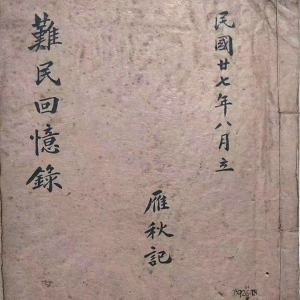 民國廿七年八月立
難民回憶錄
雁秋記